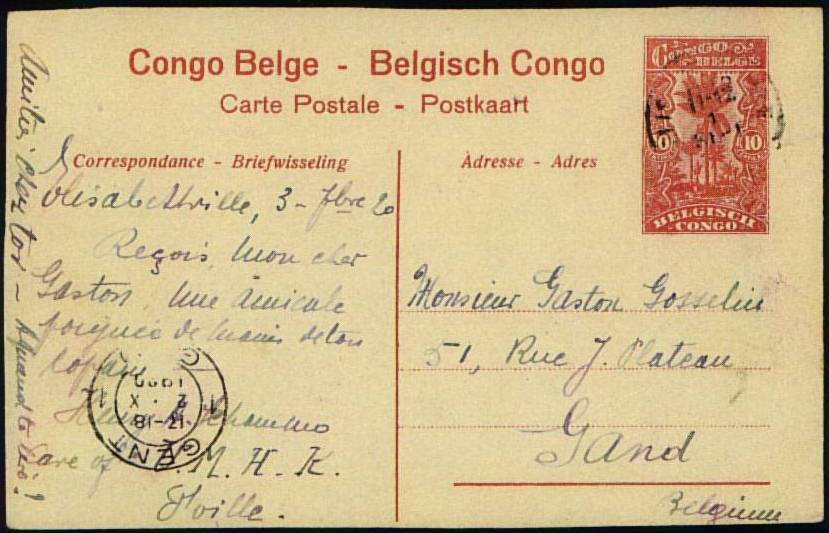 Congo Belge - Belgisch Congo
Carte Postale - Postkaart
CONGO
BELGE
10 10
BELGISCH
CONGO
Correspondance - Briefwisseling
Elisabethville, 3 - 7bre 20
Reçois, mon cher
Gaston, une amicale
poignée de mains de ton
copain
Schammo
Care of M. H. K.
E'ville.
Amitiés chez toi - A quand te lire?
GENT
17-18
2 . X
1920
Adresse - Adres
Monsieur Gaston Gosselin
51, Rue J. Plateau
Gand
Belgium